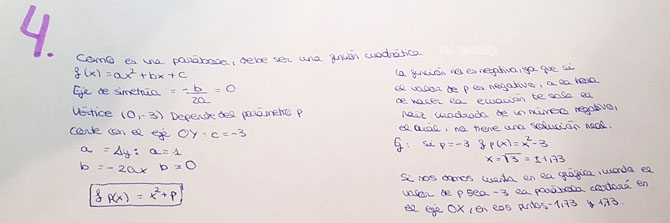 4.
Como es una parábola, debe ser una función cuadrática.
f(x)=ax²+bx+c
Eje de simetría = -b/2a = 0
Vértice (0,-3) Depende del parámetro p
Corte con el eje OY: c=-3
a = Δy: a=1
b = -2ax b=0
f p(x) = x²+p
La función no es negativa, ya que si
el valor de p es negativo, a la hora
de hacer la ecuación te sale la
raíz cuadrada de un número negativo,
el cual, no tiene una solución real.
Ej: Si p=-3 f p(x)=x²-3
x=√3 = ±1,73
Si nos damos cuenta en la gráfica, cuando el
valor de p sea -3 la parábola cortará en
el eje OX, en los puntos -1,73 y 1,73.